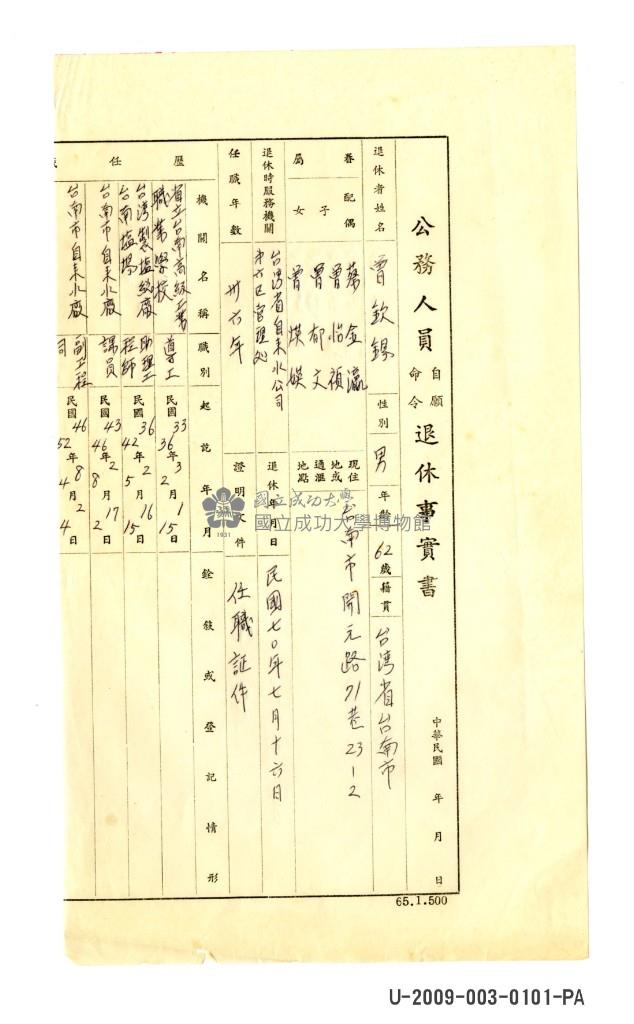 公務人員 自願 命令 退休事實書
中華民國 年 月 日
退休者姓名 曾欽錫 性別 男 年齡 62歲 籍貫 台湾省台南市
眷屬 配偶 蔡金瀛
子 曾怡禎
曾郁文
女 曾煐媖
現住地或通滙地點 台南市開元路71巷23-2
退休時服務機關 台湾省自来水公司
第六区管理処
退休年月日 民國七〇年七月十六日
任職年數 卅六年
證明文件 任職証件
歷任
機關名稱 職別 起訖年月 銓敘或登記情形
省立台南高級工業職業學校 導工 民國 33年3月1日 36 2 15
台湾製塩総廠台南塩場 助理工程師 民國 36年2月16日 42 5 15
台南市自来水廠 課員 民國 43年2月17日 46 8 2
台南市自来水廠 副工程司 民國 46年8月2日 52 4 4
65.1.500
國立成功大學
國立成功大學博物館
1931
U-2009-003-0101-PA